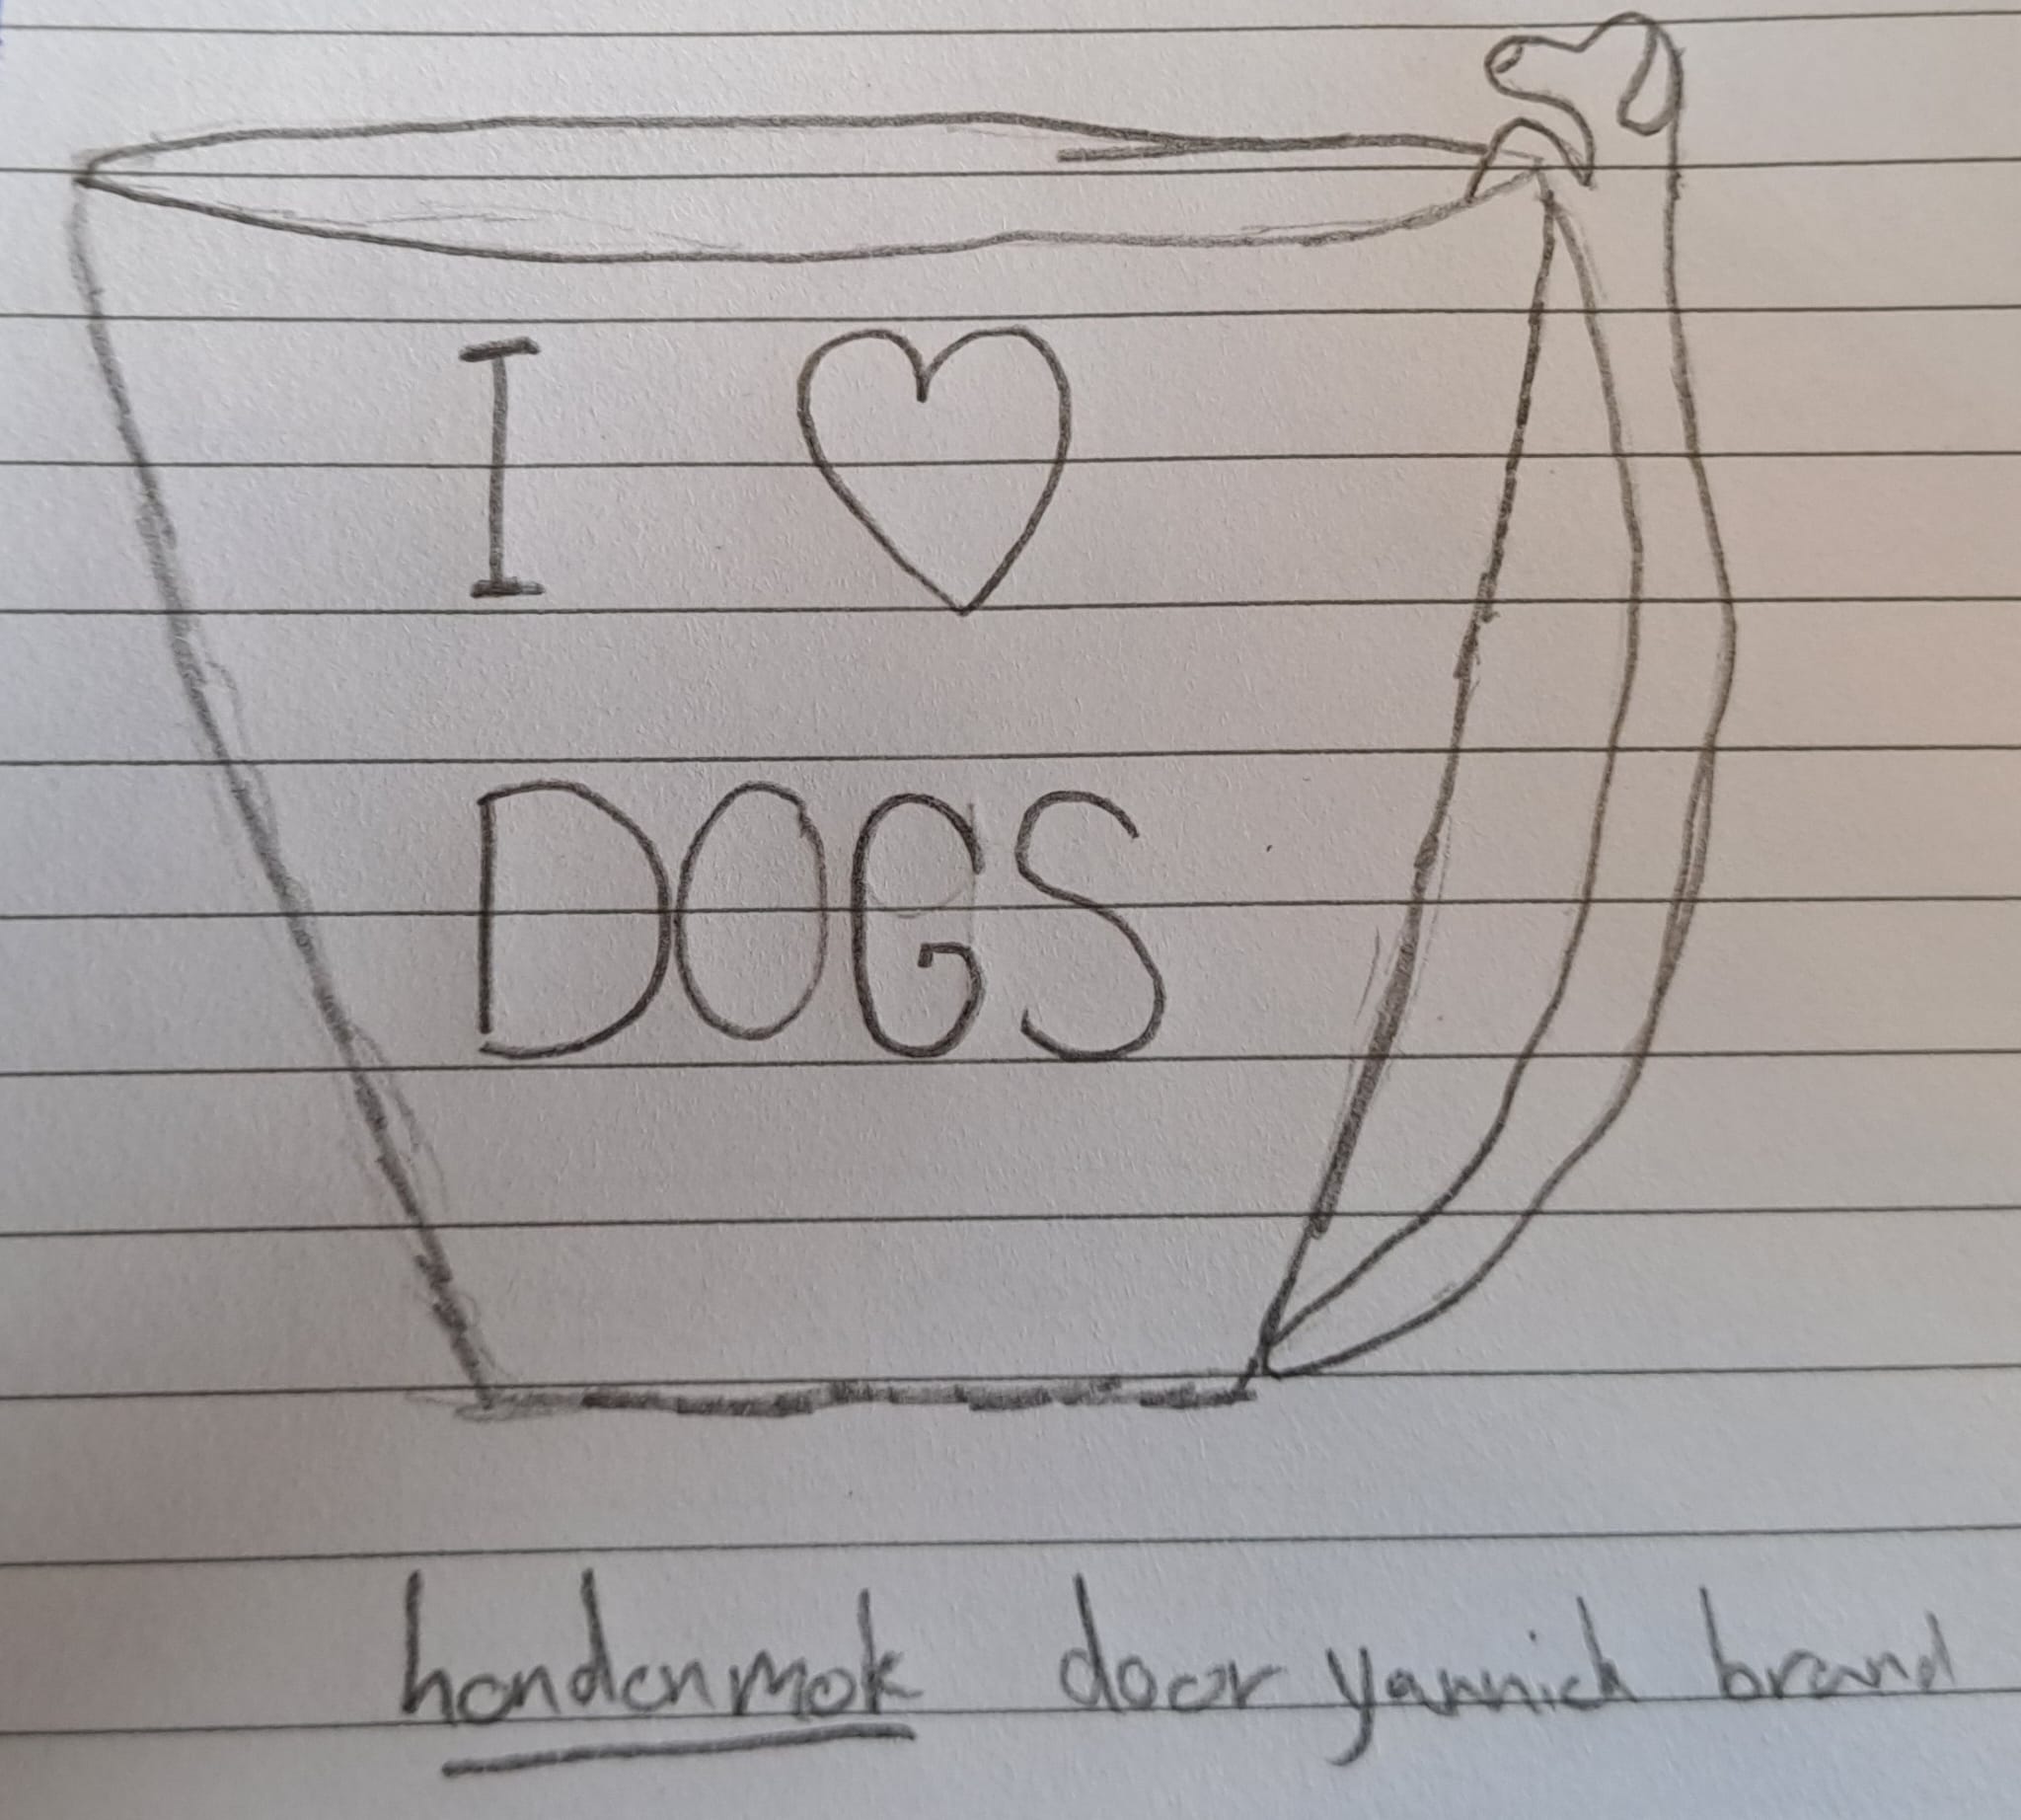 I ♡
DOGS
hondenmok door yannick brand